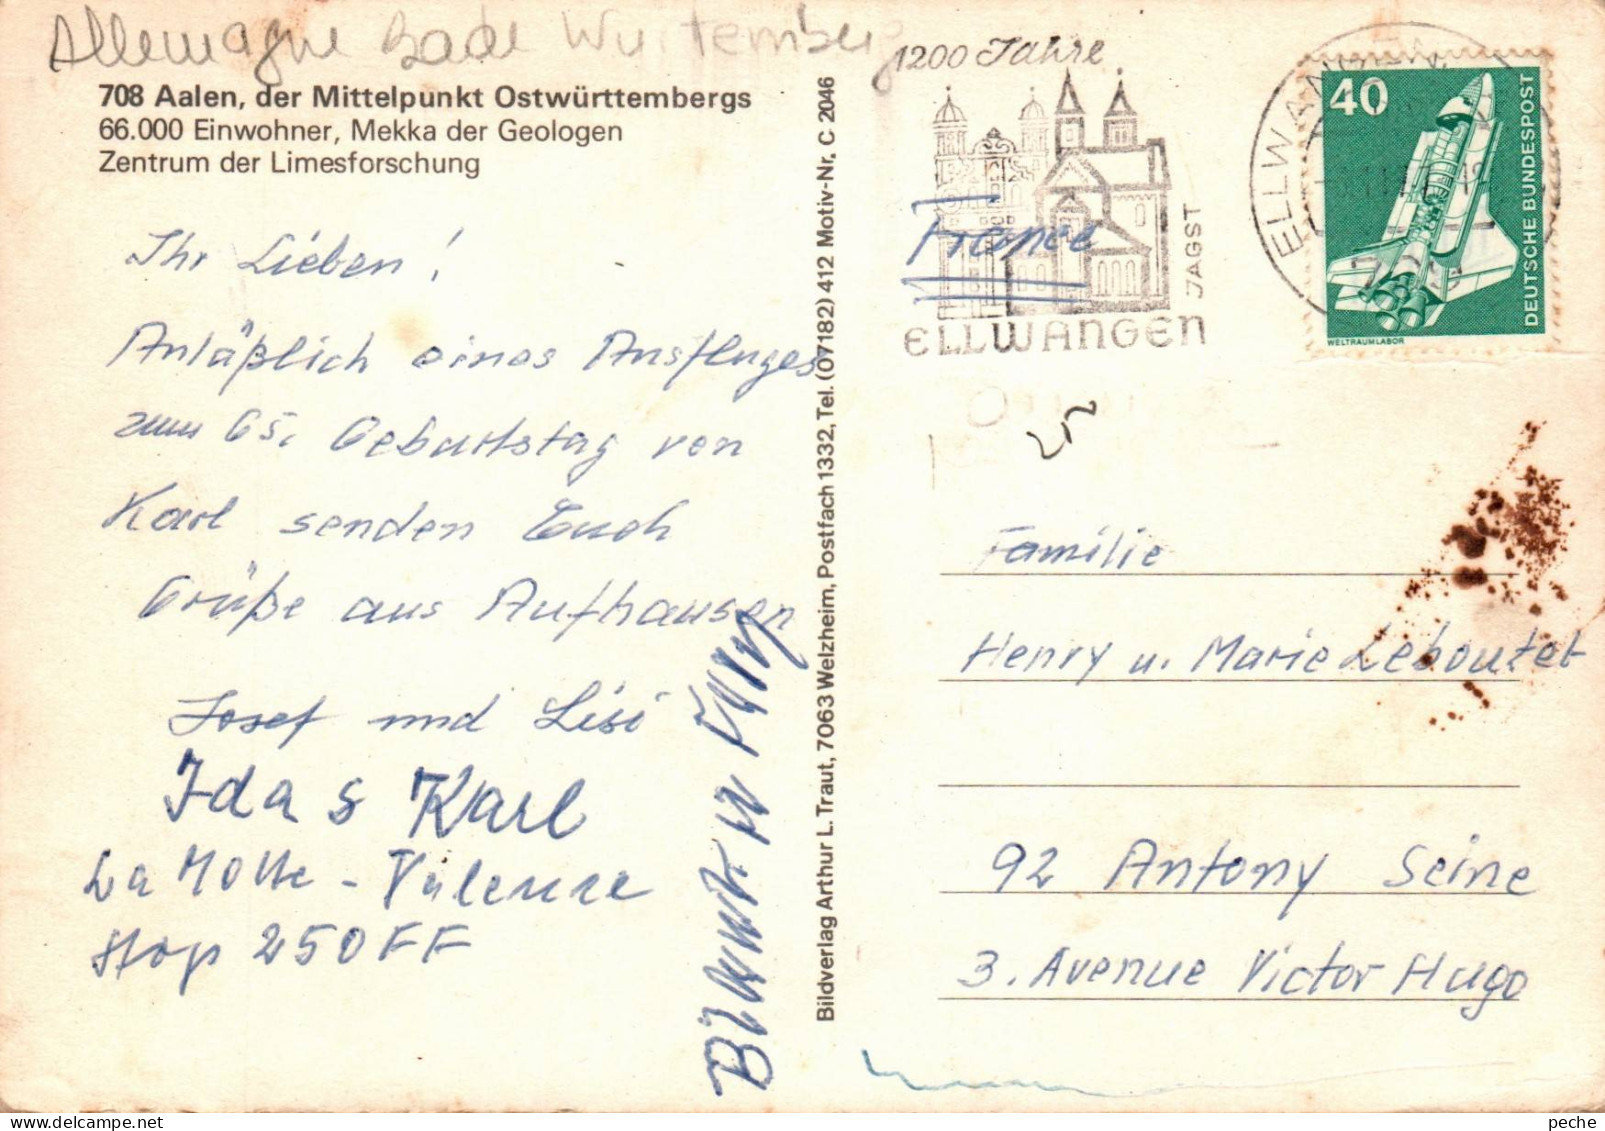 Allemagne Bade Wurtemberg
708 Aalen, der Mittelpunkt Ostwürttembergs
66.000 Einwohner, Mekka der Geologen
Zentrum der Limesforschung
Ihr Lieben!
Anläßlich eines Ausfluges
zum 65. Geburtstag von
Karl senden Euch
Grüße aus Aufhausen
Josef und Lisi
Ida s Karl
La Motte - Valence
Hop 250 FF
Bildverlag Arthur L. Traut, 7063 Welzheim, Postfach 1332, Tel. (07182) 412 Motiv-Nr. C 2046
1200 Jahre
ELLWANGEN
JAGST
ELLWANGEN
40
DEUTSCHE BUNDESPOST
WELTRAUMLABOR
France
Familie
Henry u. Marie Leboutet
92 Antony Seine
3. Avenue Victor Hugo
peche